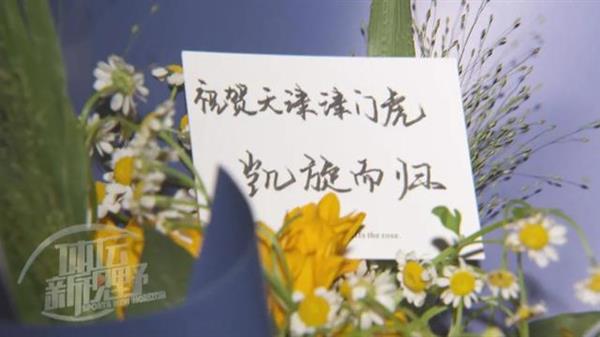 祝贺天津津门虎
凯旋而归
ts the rose.
体坛
新视野
SPORTS NEW HORIZON